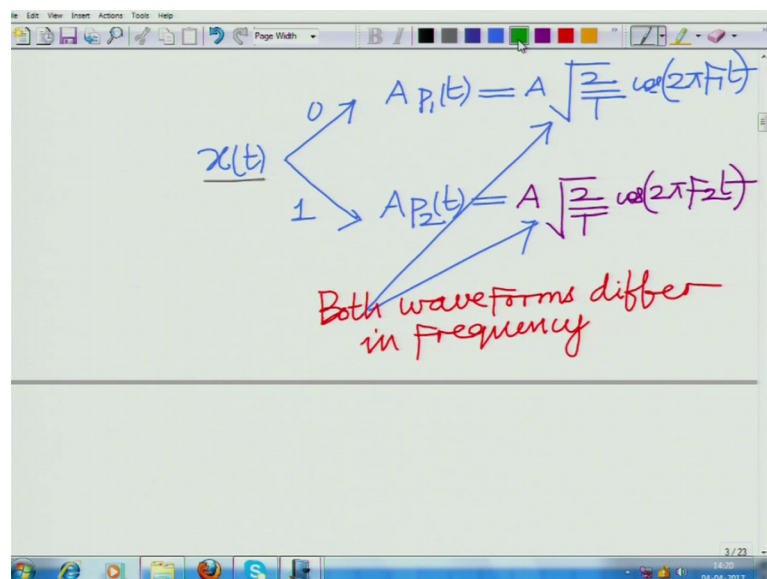 Edit View Insert Actions Tools Help
Page Width
B I
0 A P₁(t) = A √(2/T) cos(2πF₁t)
x(t)
1 A P₂(t) = A √(2/T) cos(2πF₂t)
Both waveforms differ
in Frequency
3 / 23
14:20
04-04-2017